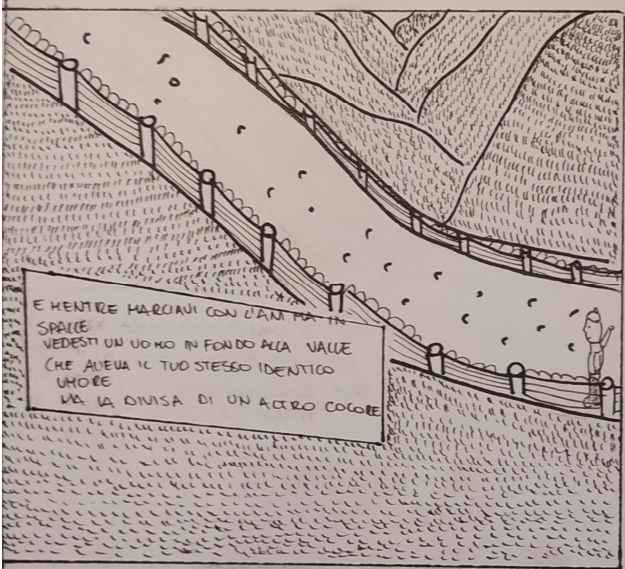 E MENTRE MARCIAVI CON L'ANIMA IN
SPALLE
VEDESTI UN UOMO IN FONDO ALLA VALLE
CHE AVEVA IL TUO STESSO IDENTICO
UMORE
MA LA DIVISA DI UN ALTRO COLORE